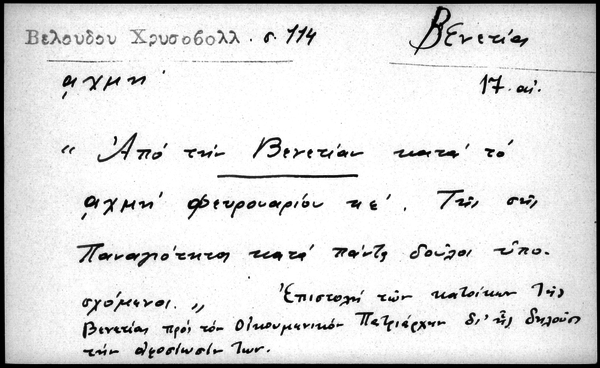 Βελουδου Χρυσοβολλ. σ. 114
Βενετία
͵αχμη΄
17. αἰ.
“ Ἀπό τήν Βενετίαν κατά τό
͵αχμη΄ φευρουαρίου κε΄. Τῆς σῆς
Παναγιότητος κατά πάντα δοῦλοι ὑπο-
σχόμενοι. „ Ἐπιστολή τῶν κατοίκων τῆς
Βενετίας πρός τόν Οἰκουμενικόν Πατριάρχην δι' ἧς δηλοῦσι
τήν ἀφοσίωσίν των.